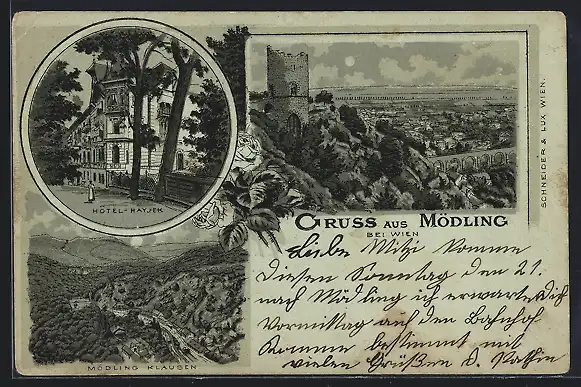 HÔTEL-HAYJEK
SCHNEIDER & LUX WIEN.
GRUSS AUS MÖDLING
BEI WIEN
Liebe Mitzi komme
diesen Sonntag den 21.
nach Mödling ich erwarte Dich
Vormittag auf den Bahnhof
Komme bestimmt mit
vielen Grüßen d.
MÖDLING KLAUSEN